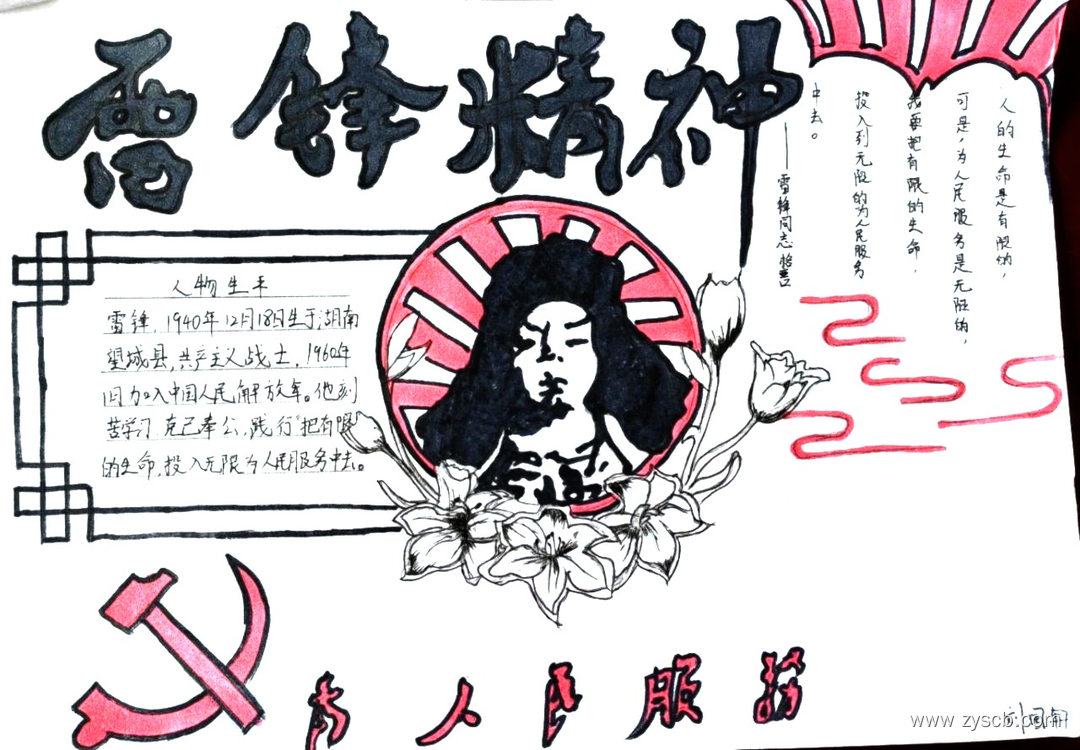 雷锋精神
人的生命是有限的，
可是，为人民服务是无限的，
我要把有限的生命，
投入到无限的为人民服务
中去。
——雷锋同志
人物生平
雷锋，1940年12月18日生于湖南
望城县，共产主义战士，1960年
加入中国人民解放军。他刻
苦学习 克己奉公，践行“把有限
的生命，投入无限为人民服务中去。
为人民服务
www.zyscb.com